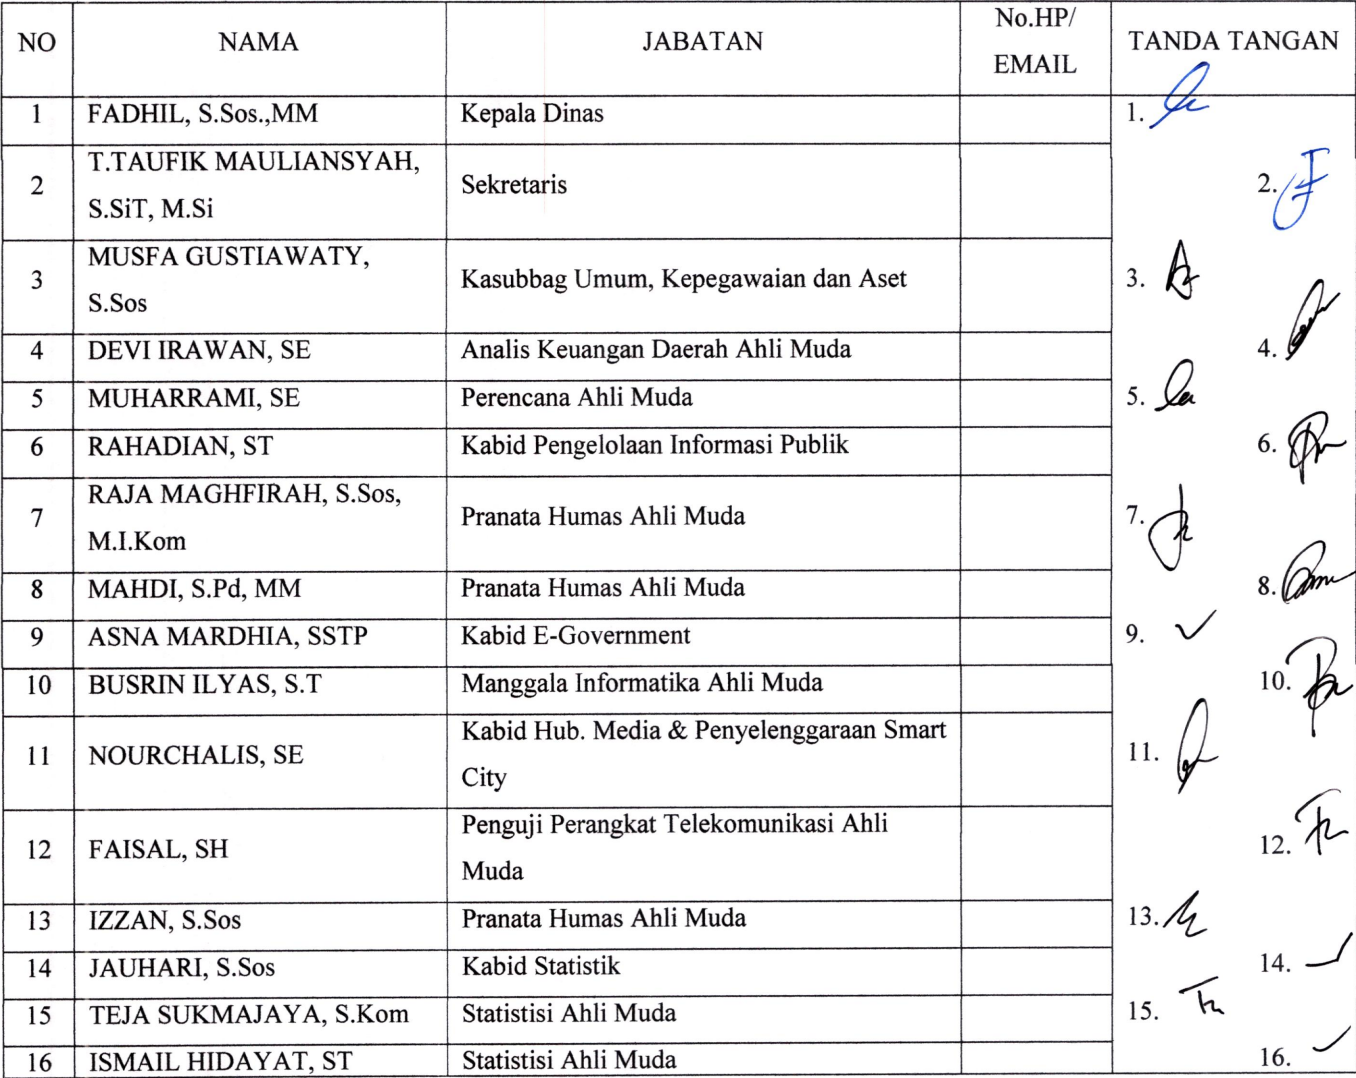 NO NAMA JABATAN No.HP/ EMAIL TANDA TANGAN
1 FADHIL, S.Sos.,MM Kepala Dinas 1.
2 T.TAUFIK MAULIANSYAH, Sekretaris 2.
S.SiT, M.Si
3 MUSFA GUSTIAWATY, Kasubbag Umum, Kepegawaian dan Aset 3.
S.Sos
4 DEVI IRAWAN, SE Analis Keuangan Daerah Ahli Muda 4.
5 MUHARRAMI, SE Perencana Ahli Muda 5.
6 RAHADIAN, ST Kabid Pengelolaan Informasi Publik 6.
7 RAJA MAGHFIRAH, S.Sos, Pranata Humas Ahli Muda 7.
M.I.Kom
8 MAHDI, S.Pd, MM Pranata Humas Ahli Muda 8.
9 ASNA MARDHIA, SSTP Kabid E-Government 9.
10 BUSRIN ILYAS, S.T Manggala Informatika Ahli Muda 10.
11 NOURCHALIS, SE Kabid Hub. Media & Penyelenggaraan Smart 11.
City
12 FAISAL, SH Penguji Perangkat Telekomunikasi Ahli 12.
Muda
13 IZZAN, S.Sos Pranata Humas Ahli Muda 13.
14 JAUHARI, S.Sos Kabid Statistik 14.
15 TEJA SUKMAJAYA, S.Kom Statistisi Ahli Muda 15.
16 ISMAIL HIDAYAT, ST Statistisi Ahli Muda 16.